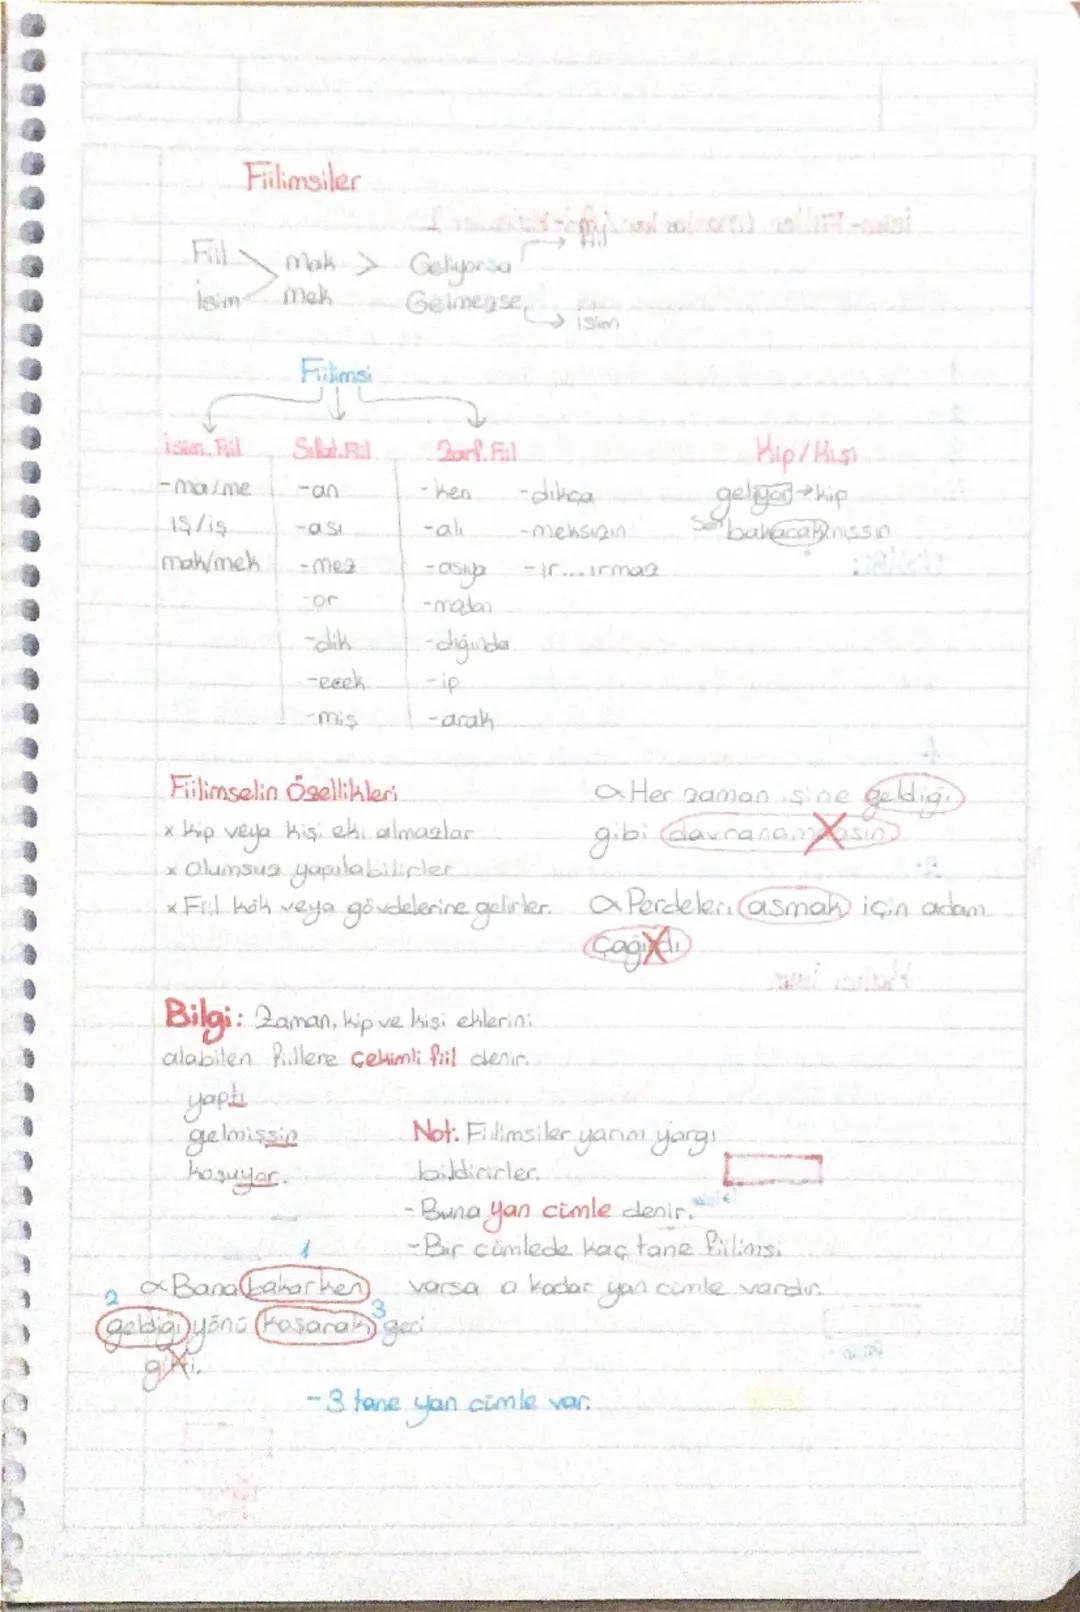 Fiilimsiler
Fiil
İsim
mak >
mek
Geliyorsa
Gelmezse
→ fiil
→ isim
Fiilimsi
İsim. Fiil
-ma/me
ış/iş
mak/mek
Sıfat. Fiil
-an
-ası
-mez
-or
-dik
-ecek
-miş
Zarf. Fiil
-ken
-alı
-asıya
-madan
-dığında
-ip
-arak
-dıkça
-meksizin
-ır...ırmaz
Kip/Kişi
geliyor → kip
Sen bakacakmışsın
Fiilimselin Özellikleri
x Kip veya kişi eki almazlar
x Olumsuz yapılabilirler
x Fiil kök veya gövdelerine gelirler.
α Her zaman işine geldiği
gibi
α Perdeleri asmak için adam
çağırdı
Bilgi: Zaman, kip ve kişi eklerini
alabilen fiillere çekimli fiil denir.
yaptı
gelmişsin
koşuyor.
Not: Fiilimsiler yarım yargı
bildirirler.
- Buna yan cümle denir.
- Bir cümlede kaç tane fiilimsi
varsa o kadar yan cümle vardır.
1
α Bana bakarken
2
geldiği yönü koşarak 3 geri
gitti.
- 3 tane yan cümle var.